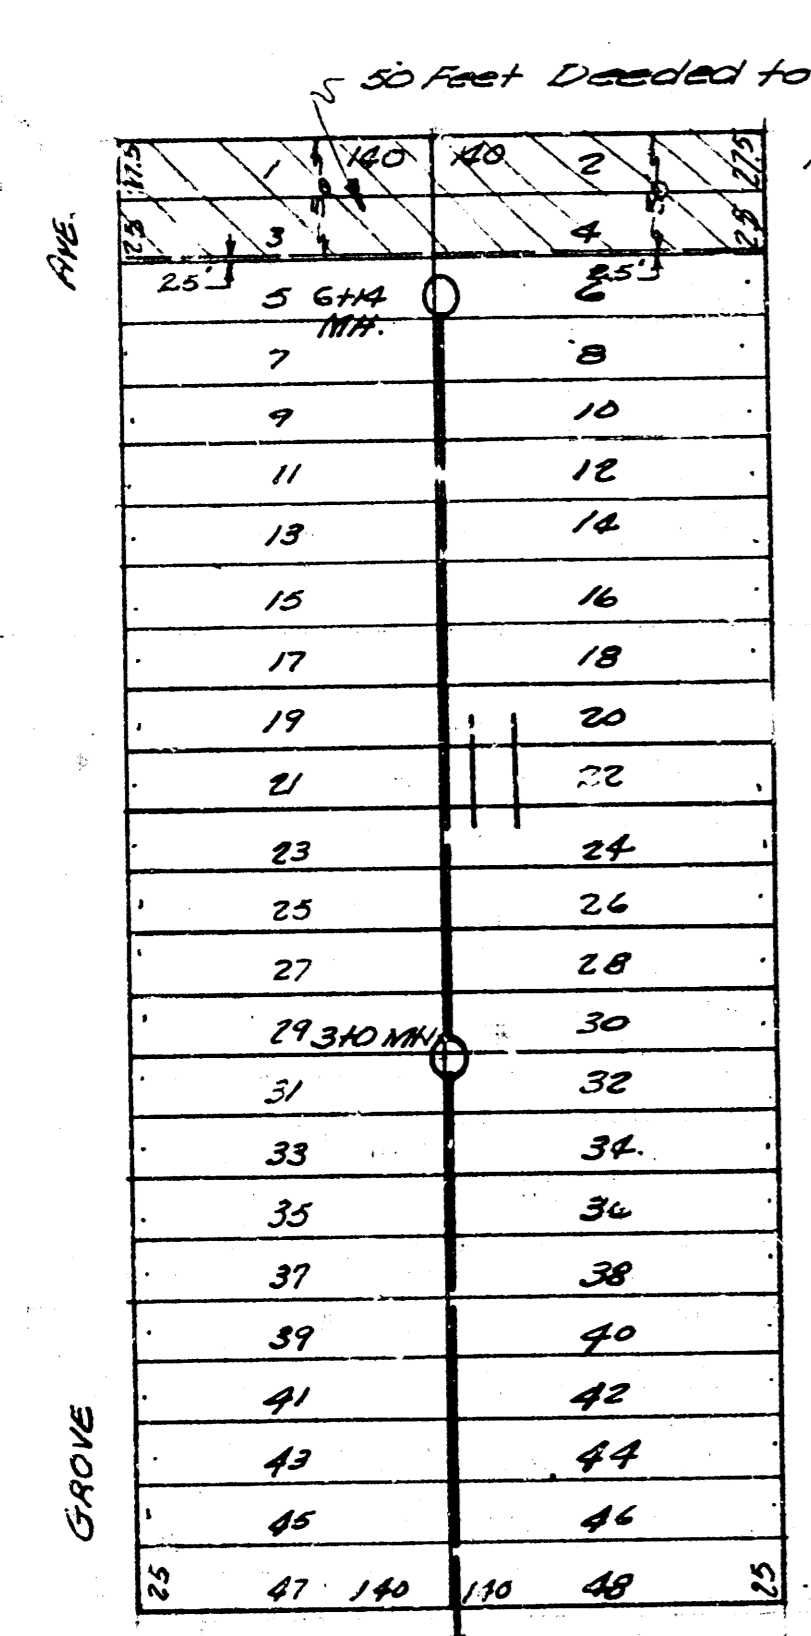 50 Feet Deeded to
27.5 1 140 140 2 27.5
50 50
25 3 4 25
AVE.
2.5' 2.5'
5 6+14 6
MH.
7 8
9 10
11 12
13 14
15 16
17 18
19 20
21 22
23 24
25 26
27 28
29 3+0 MH. 30
31 32
33 34
35 36
37 38
39 40
41 42
43 44
GROVE
45 46
25 47 140 140 48 25